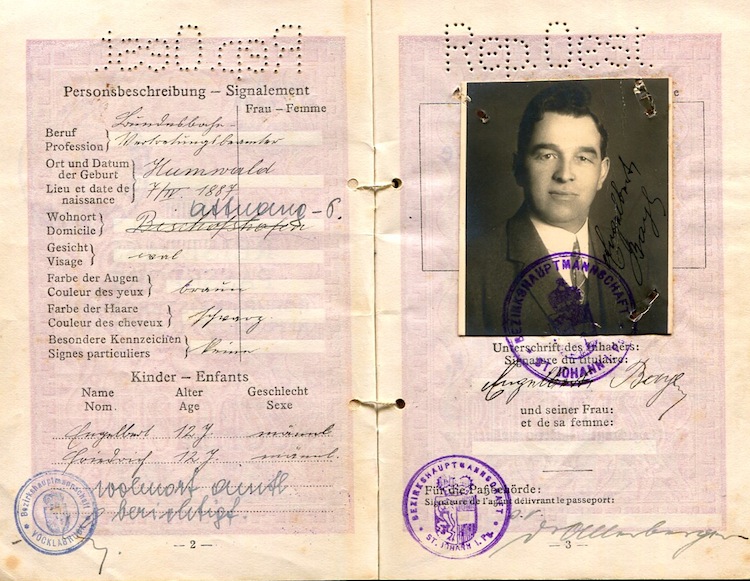 Rep. Oest
Personsbeschreibung – Signalement
Frau – Femme
Beruf
Profession
Bundesbahn-
Vertretungsbeamter
Ort und Datum
der Geburt
Lieu et date de
naissance
Humwald
7/IV 1887
Attnang-P.
Wohnort
Domicile
Bischofshofen
Gesicht
Visage
oval
Farbe der Augen
Couleur des yeux
braun
Farbe der Haare
Couleur des cheveux
schwarz
Besondere Kennzeichen
Signes particuliers
keine
Kinder – Enfants
Name Alter Geschlecht
Nom. Age Sexe
Engelbert 12 J männl.
Friedrich 12 J männl.
Wohnort amtl
berichtigt.
Bezirkshauptmannschaft
VÖCKLABRUCK
– 2 –
Rep. Oest
Engelbert
BEZIRKSHAUPTMANNSCHAFT
ST. JOHANN I. PG.
Unterschrift des Inhabers:
Signature du titulaire:
Engelbert
und seiner Frau:
et de sa femme:
Für die Paßbehörde:
Signature de l'agent délivrant le passeport:
BEZIRKSHAUPTMANNSCHAFT
ST. JOHANN I. PG.
– 3 –